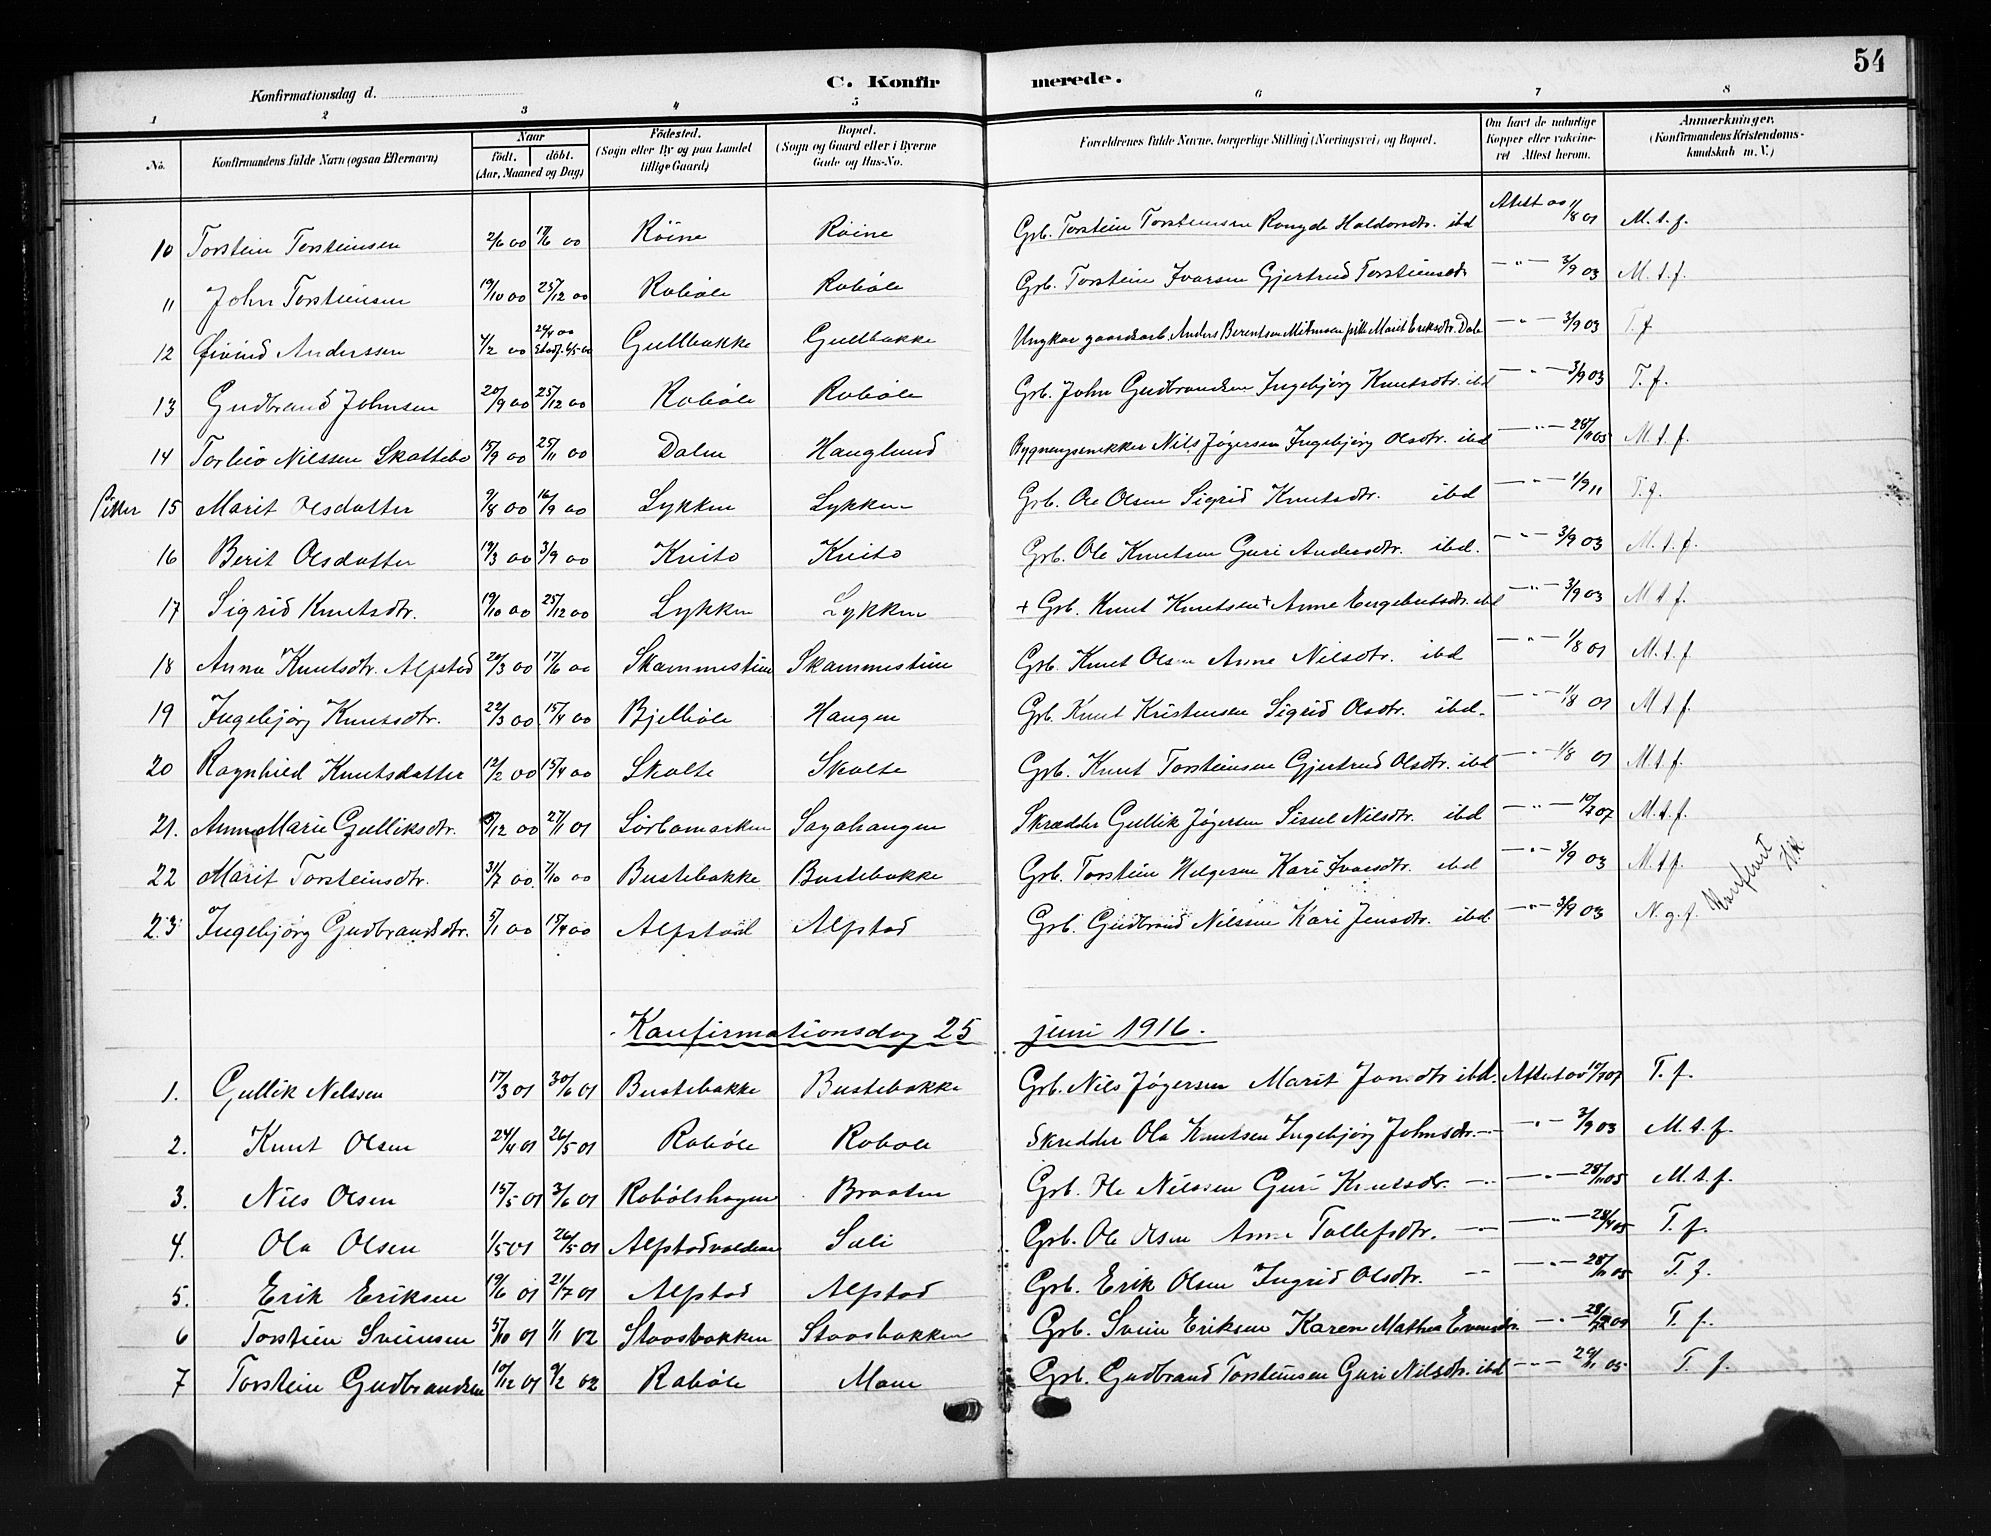 54
C. Konfir merede.
Konfirmationsdag d.
1 2 3 4 5 6 7 8
No. Konfirmandens fulde Navn (ogsaa Efternavn) Naar født. døbt. (Aar, Maaned og Dag) Fødested. (Sogn eller By og paa Landet tillige Gaard) Bopæl. (Sogn og Gaard eller i Byerne Gade og Hus-No. Forældrenes fulde Navne, borgerlige Stilling (Næringsvei) og Bopæl. Om havt de naturlige Kopper eller vakcineret Attest herom. Anmærkninger. (Konfirmandens Kristendomskundskab m. V.)
10 Torstein Torsteinsen 2/6 00 17/6 00 Röine Röine Grb. Torstein Torsteinsen Rangde Haldorsdtr. ibd 1/8 01 M.t.f.
11 John Torsteinsen 19/10 00 25/12 00 Robøle Robøle Grb. Torstein Ivarsen Gjertrud Torsteinsdtr —"— 3/9 03 M.t.f.
12 Øivind Anderssen 4/2 00 Gullbakke Gullbakke Ungkar gaardsarb. Anders Berentsen pike Marit Eriksdtr. Dale —"— 3/9 03 T.f
13 Gudbrand Johnsen 20/9 00 25/12 00 Robøle Robøle Grb. John Gudbrandsen Ingebjörg Knutsdtr. ibd —"— 3/9 03 T.f.
14 Torleiv Nilssen Skattebo 15/9 00 25/11 00 Dalen Hauglund Bygningssnekker Nils Jøgersen Ingebjørg Olsdtr. ibd —"— 28/11 05 M.t.f.
Piker 15 Marit Olsdatter 9/8 00 16/9 00 Lykken Lykken Grb. Ole Olsen Sigrid Knutsdtr. ibd —"— 1/9 11 T.f.
16 Berit Olsdatter 19/3 00 3/9 00 Kvito Kvito Grb. Ole Knutsen Guri Andersdtr. ibd. —"— 3/9 03 M.t.f.
17 Sigrid Knutsdtr. 19/10 00 25/12 00 Lykken Lykken + Grb. Knut Knutsen + Anne Engebretsdtr. ibd —"— 3/9 03 M.t.f.
18 Anna Knutsdtr. Alfstad 20/3 00 17/6 00 Skammestein Skammestein Grb. Knut Olsen Anne Nilsdtr. ibd —"— 1/8 01 M.t.f.
19 Ingebjörg Knutsdtr. 22/3 00 15/4 00 Bjelbøle Haugen Grb. Knut Kristensen Sigrid Olsdtr. ibd. —"— 1/8 01 M.t.f.
20 Ragnhild Knutsdatter 12/2 00 15/4 00 Skolte Skolte Grb. Knut Torsteinsen Gjertrud Olsdtr. ibd —"— 1/8 01 M.t.f.
21. Anne Marie Gulliksdtr. 12 00 27/11 01 Sörbomarken Sagahaugen Skrædder Gullik Jøgersen Sissel Nilsdtr. ibd —"— 10/7 07 M.t.f.
22 Marit Torsteinsdtr. 31/7 00 7/10 00 Bustebakke Bustebakke Grb. Torstein Helgesen Kari Ivarsdtr. ibd —"— 3/9 03 M.t.f.
23 Ingebjörg Gudbrandsdtr. 5/1 00 15/4 00 Alfstad Alfstad Grb. Gudbrand Nilssen Kari Jensdtr. ibd —"— 3/9 03 N.g.f.
Konfirmationsdag 25 juni 1916.
1. Gullik Nilssen 17/3 01 30/6 01 Bustebakke Bustebakke Grb. Nils Jøgersen Marit Jonsdtr ibd. Attest av 10/7 07 T.f.
2. Knut Olsen 24/4 01 26/5 01 Robøle Robøle Skredder Ola Knutsen Ingebjörg Johnsdtr. —"— —"— 3/9 03 M.t.f.
3. Nils Olsen 15/5 01 3/6 01 Robølshagen Braaten Grb. Ole Nilssen Guri Knutsdtr. —"— —"— 28/11 05 M.t.f.
4. Ola Olsen 1/5 01 26/5 01 Alfstadvolden Sæli Grb. Ole Olsen Anne Tollefsdtr. —"— —"— 28/11 05 T.f.
5. Erik Eriksen 19/6 01 21/7 01 Alfstad Alfstad Grb. Erik Olsen Ingrid Olsdtr. —"— —"— 28/11 05 T.f.
6 Torstein Sveinsen 5/10 01 1/1 02 Stavsbakken Stavsbakken Grb. Svein Eriksen Karen Mathea Evensdtr. —"— T.f.
7 Torstein Gudbrandsen 10/12 01 9/2 02 Robøle Moen Grb. Gudbrand Torsteinsen Guri Nilsdtr. ibd —"— 05 T.f.